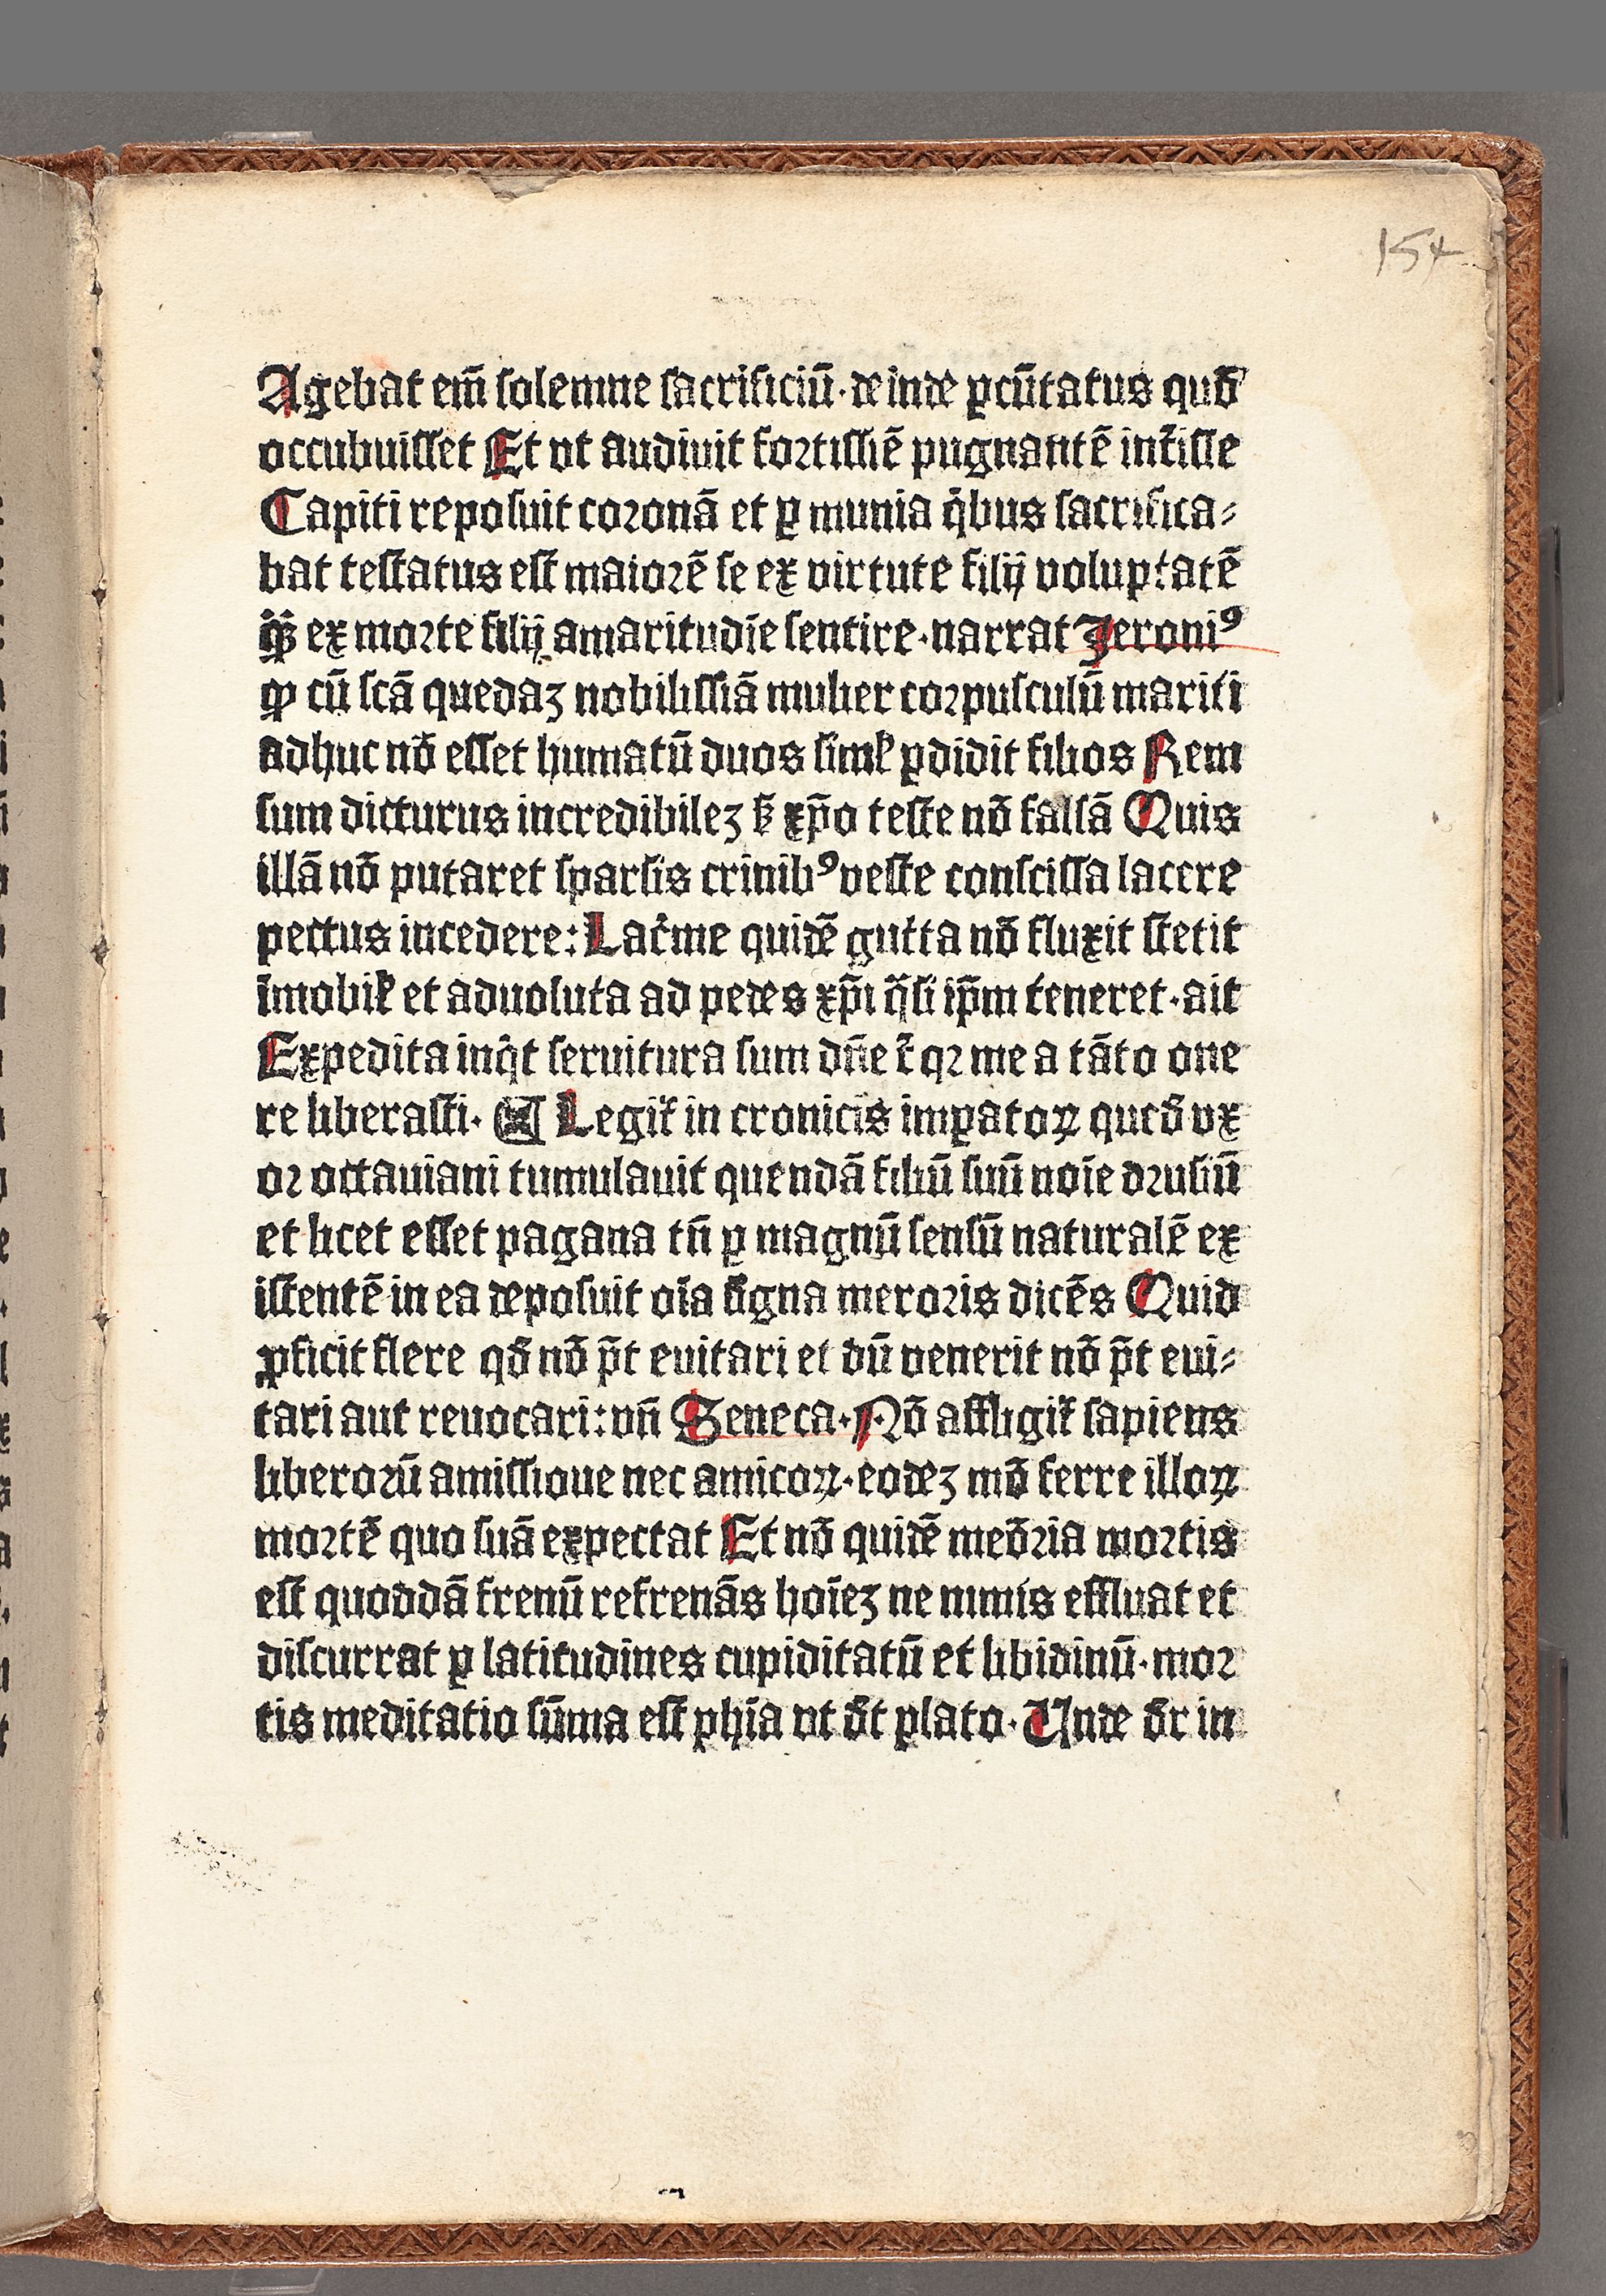 154
Agebat em̄ ſolemne ſacrificiū· deinde ꝑcūtatus quō
occubuiſſet Et vt audiuit fortiſſiē pugnantē int̄iſſe
Capiti repoſuit coronā et ꝑ munia q̇bus ſacrifica⸗
bat teſtatus eſt maiorē ſe ex virtute filij voluptatē
ꝙ̈ ex morte filij amaritudīe ſentire·narrat Jeroniꝰ
ꝙ cū ſcā quedaꝫ nobiliſſiā mulier corpuſculū mariti
adhuc nō eſſet humatū duos ſimꝉ ꝑdidit filios Rem
ſum dicturus incredibileꝫ ẜ xp̄o teſte nō falſā Quis
illā nō putaret ſparſis crinibꝰ veſte conſciſſa lacere
pectus incedere: Lac̄me quidē gutta nō fluxit ſtetit
īmobiꝉ et aduoluta ad pedes xp̄i q̄ſi ip̄m teneret·ait
Expedita inq̇t ſeruitura ſum dn̄e t̄ qꝛ me a tāto one
re liberaſti· ¶ Legit᷑ in cronicis imꝑatoꝝ quedā vx
or octauiani tumulauit quendā filiū ſuū noīe druſiū
et licet eſſet pagana tn̄ ꝑ magnū ſenſū naturalē ex
iſtentē in ea depoſuit oīa ſigna meroris dicēs Quid
ꝓficit flere qð nō p̄t euitari et dū venerit nō p̄t eui⸗
tari aut reuocari: vn̄ Seneca· Nō affligit᷑ ſapiens
liberorū amiſſione nec amicoꝝ·eodeꝫ mō ferre illoꝝ
mortē quo ſuā expectat Et nō quidē meōria mortis
eſt quoddā frenū refrenās hoīeꝫ ne nimis effluat et
diſcurrat ꝑ latitudines cupiditatū et libidinū·mor
tis meditatio ſūma eſt phīa vt d̄t plato· Unde d̄r in